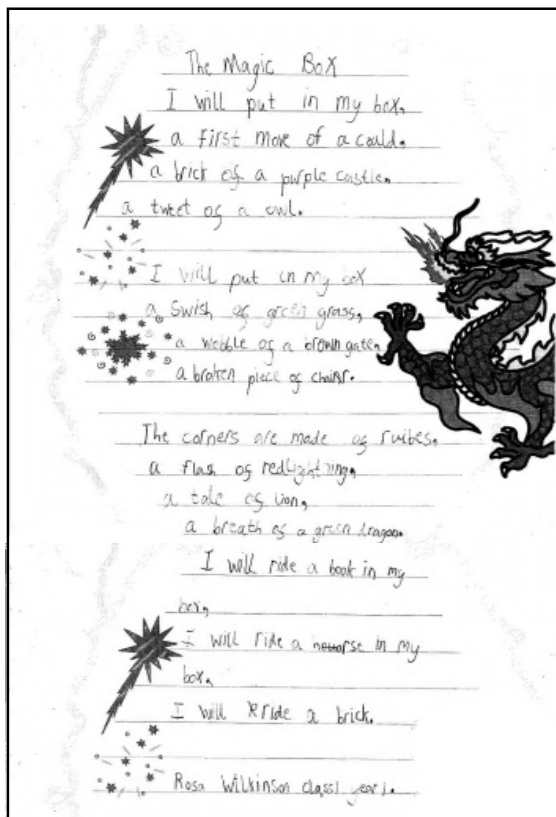 The Magic Box
I will put in my box,
a first move of a could.
a brick of a purple castle.
a tweet of a owl.
I will put in my box
a swish of green grass,
a wobble of a brown gate,
a broken piece of chair.
The corners are made of ruibes.
a flash of redlightning.
a tale of lion,
a breath of a green dragon.
I will ride a book in my
box,
I will ride a horse in my
box,
I will ride a brick.
Rosa Wilkinson class1 year1.